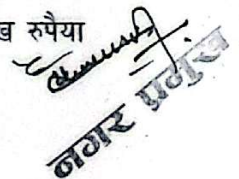 रुपैया
नगर प्रमुख